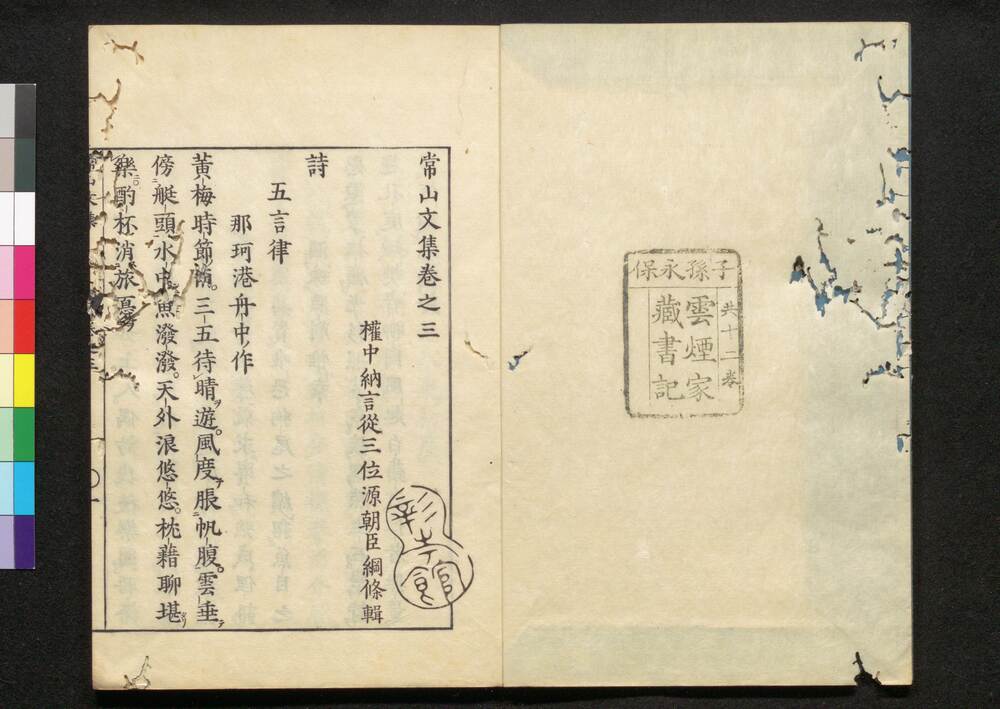 子孫永保
共十二卷
雲煙家
藏書記
常山文集卷之三
權中納言從三位源朝臣綱條輯
彰考館
詩
五言律
那珂港舟中作
黃梅時節雨。三五待晴遊。風度脹帆腹。雲垂
傍艇頭。水中魚潑潑。天外浪悠悠。枕藉聊堪
樂。酌杯消旅憂